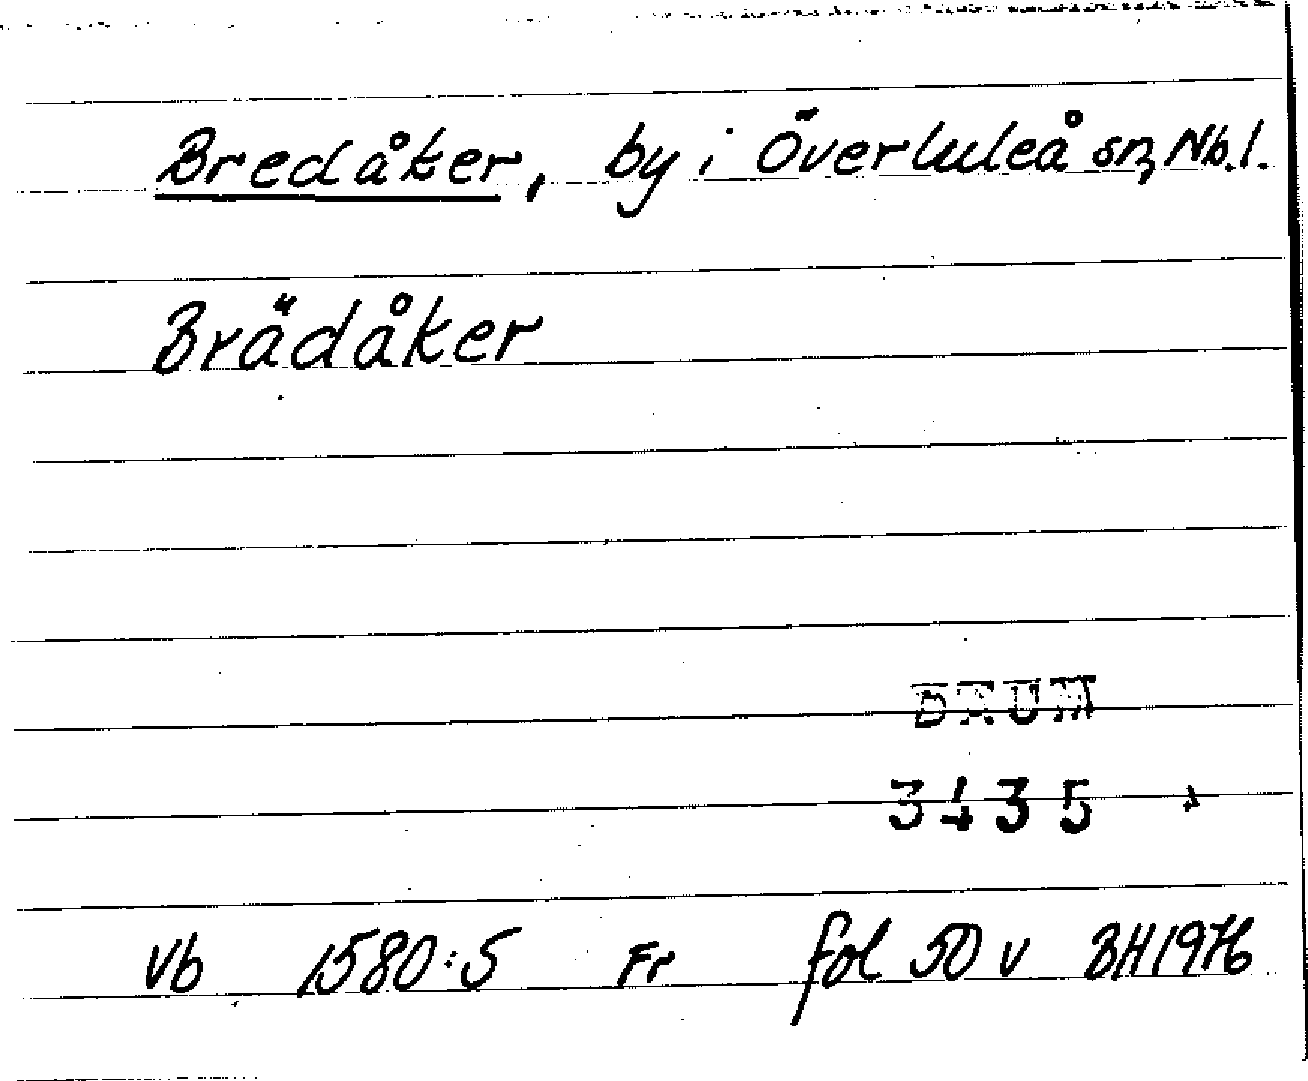 Bredåker, by i Överluleå sn, Nb.l.
Brädåker
DAUM
3435
Vb 1580:5 Fr fol 50 v BH1976